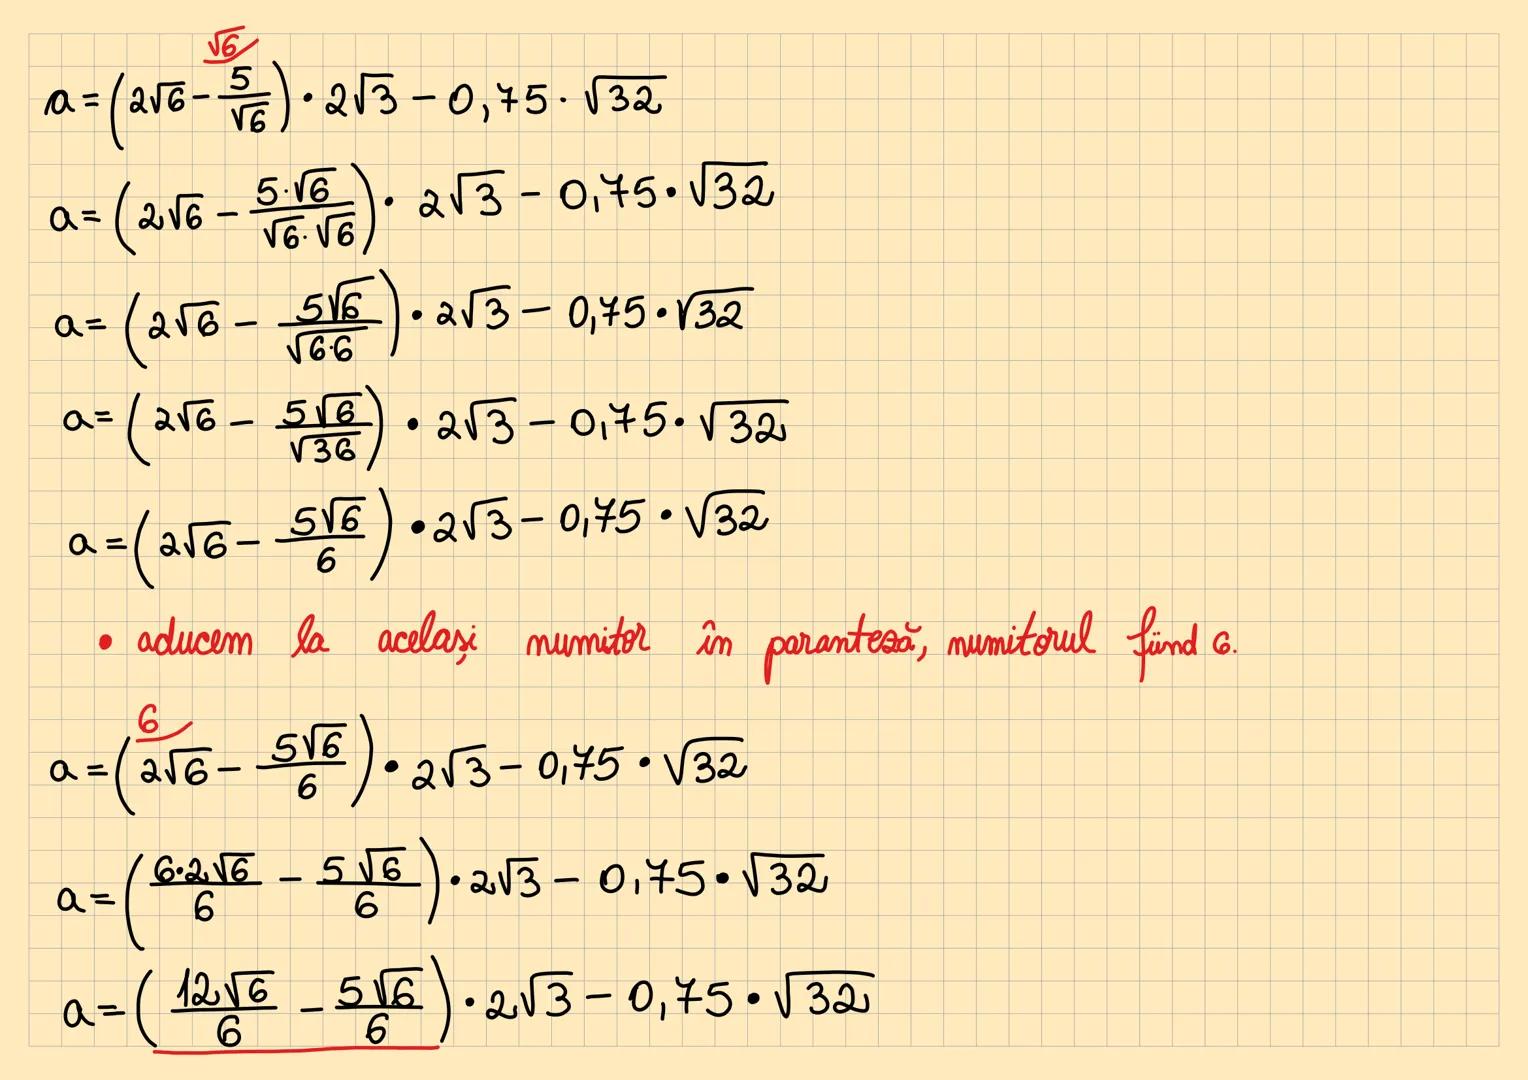 √6
a = (2√6 - 5/√6) · 2√3 - 0,75 · √32
a = (2√6 - 5·√6/√6·√6) · 2√3 - 0,75 · √32
a = (2√6 - 5√6/√6·6) · 2√3 - 0,75 · √32
a = (2√6 - 5√6/√36) · 2√3 - 0,75 · √32
a = (2√6 - 5√6/6) · 2√3 - 0,75 · √32
• aducem la același numitor în paranteză, numitorul fiind 6.
6
a = (2√6 - 5√6/6) · 2√3 - 0,75 · √32
a = (6·2√6/6 - 5√6/6) · 2√3 - 0,75 · √32
a = (12√6/6 - 5√6/6) · 2√3 - 0,75 · √32